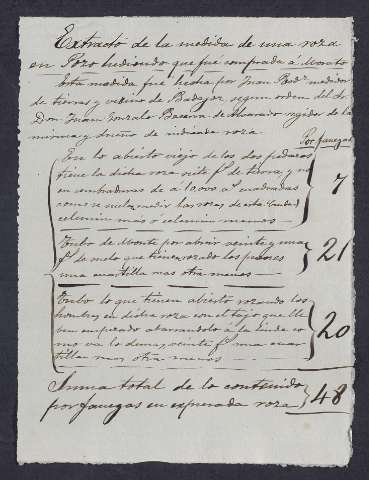 Extracto de la medida de una roza
en Pozo hediondo que fue comprada á Morato
Esta medida fué hecha por Juan Rodz medidor
de tierras y vecino de Badajoz segun orden del Sr
Don Juan Gonzalo Becerra de Alvarado regidor de la
misma y dueño de indicada roza.
Por fanegas
En lo abierto viejo de los dos pedazos
tiene la dicha roza siete fs de tierra, y no
en sembraduras de á 10,000 as cuadradas
como se suelen medir las rozas de esta Ciudad
celemin mas ó celemin menos
7
Tubo de Monte por abrir veinte y una
fs de suelo que tienen rozado los peones
una cuartilla mas otra menos
21
Tubo lo que tienen abierto rozando los
hombres en dicha roza con el tajo que lle
ben empezado abarrandolo á la linde co
mo va lo demas, veinte fs una cuar
tilla mas otra menos
20
Suma total de lo contenido
por fanegas en expresada roza
48